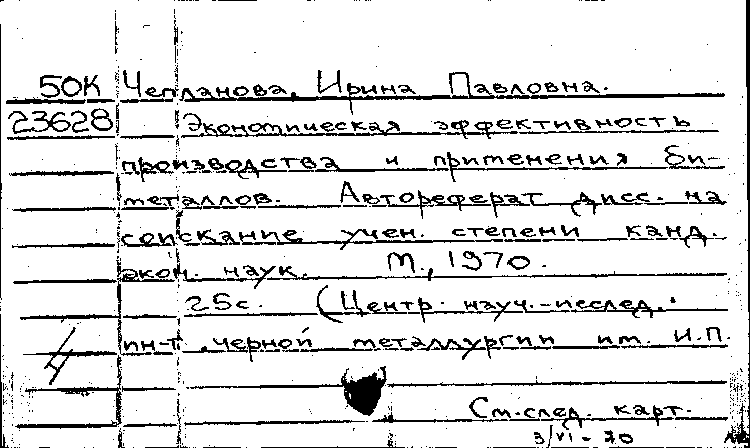 50К Чепланова, Ирина Павловна.
23628 Экономическая эффективность
производства и применения би-
металлов. Автореферат дисс. на
соискание учен. степени канд.
экон. наук. М., 1970.
25с. (Центр. науч.-исслед.
ин-т черной металлургии им. И.П.
См.след. карт.
3/VI-70